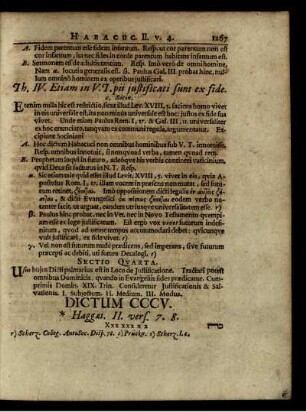 HABACUC. II. v. 4. 1267
A. Fidem parentum esse fidem infantum. Resp. ut cor parentum non est
cor infantum, ita nec fides in corde parentum habitans infantum est.
B. Sermonem esse de adultis tantum. Resp. Imò verò de omni homine,
Nam a. locutio generalis est. β. Paulus Gal. III. probat hinc, nul-
lum omninò hominem ex operibus justificari.
Th. IV. Etiam in V. T. pii justificati sunt ex fide.
c. Socin.
Etenim nulla hîc est restrictio, sicut illud Lev. XVIII, 5. faciens homo vivet
in eis universale est, ita non minus universale est hoc: justus ex fide sua
vivet. Unde etiam Paulus Rom. I, 17. & Gal. III, 11. universaliter
ex hoc enunciato, tanquam ex communi regula, argumentatur. Ex-
cipiunt Sociniani
A. Hoc dictum Habacuci non omnibus hominibus sub V. T. innotuisse.
Resp. innotuit omnibus, si non quoad verba, tamen quoad rem.
B. Prophetam loqui in futuro, adeoque his verbis contineri vaticinium,
quid Deus sit facturus in N. T. Resp.
a. Sic etiam me quid esse illud Levit. XVIII, 5. vivet in eis, quia A-
postolus Rom. I, 17. illam vocem in praesens non mutat, sed futu-
rum retinet, ζήσεται. Imò oppositionem dicti legalis ὁ ποιήσας ζήσε-
ται, & dicti Evangelici ὁ δίκαιος ζήσεται eodem verbo no-
center facit, ut arguat, eandem utriusque universalitatem esse.
β. Paulus hinc probat, nec in Vet. nec in Novo Testamento quemqu-
am esse ex lege justificatum. Id ergo vox vivet futurum indefi-
nitum, quod ad omne tempus accommodari debet: quicunque
vult justificari, ex fide vivet.
γ. Vel non est futurum nudè praedicens, sed imperans, sive futurum
praecepti ac debiti, uti futura Decalogi.
SECTIO QUARTA.
Usus hujus Dicti primarius est in Loco de Justificatione. Tractari potest
omnibus Dominicis, quando in Evangeliis fides praedicatur. Cum-
primis Domin. XIX. Trin. Consideretur Justificationis & Sal-
vationis I. Subjectum. II. Medium. III. Modus.
DICTUM CCCV.
* Haggai. II. vers. 7. 8.
XXXXXXX